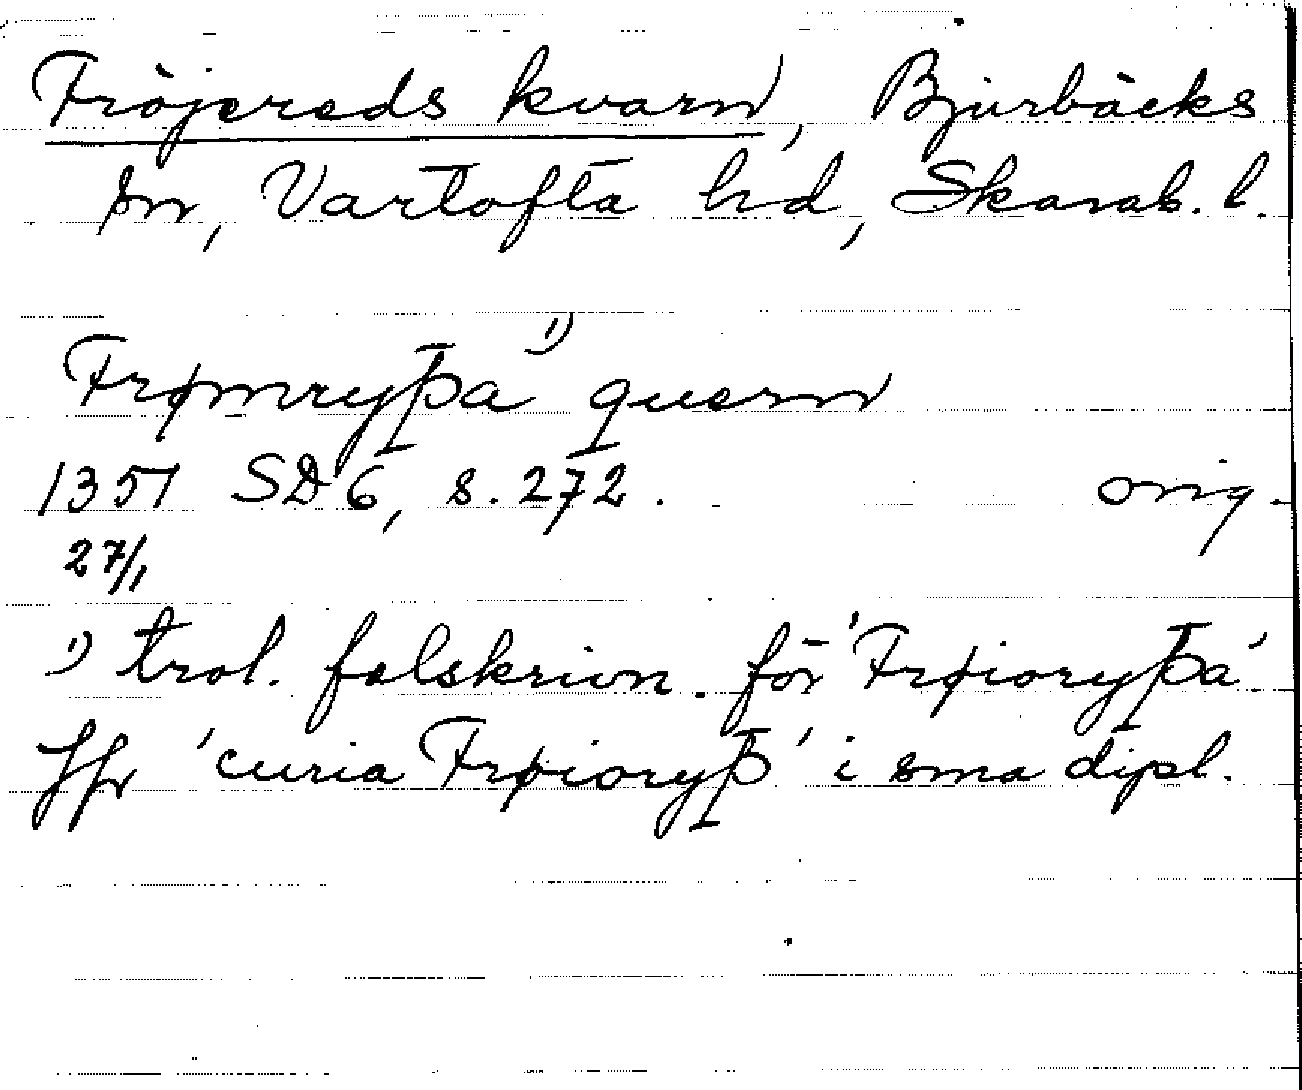 Fröjereds kvarn, Bjurbäcks
sn, Vartofta hd, Skarab. l.
Frømryþa ¹⁾ quern
1351 SD 6, s. 272. orig.
27/1
¹⁾ trol. felskrivn. för 'Frøioryþa'
Jfr 'curia Frøioryþ' i sma dipl.